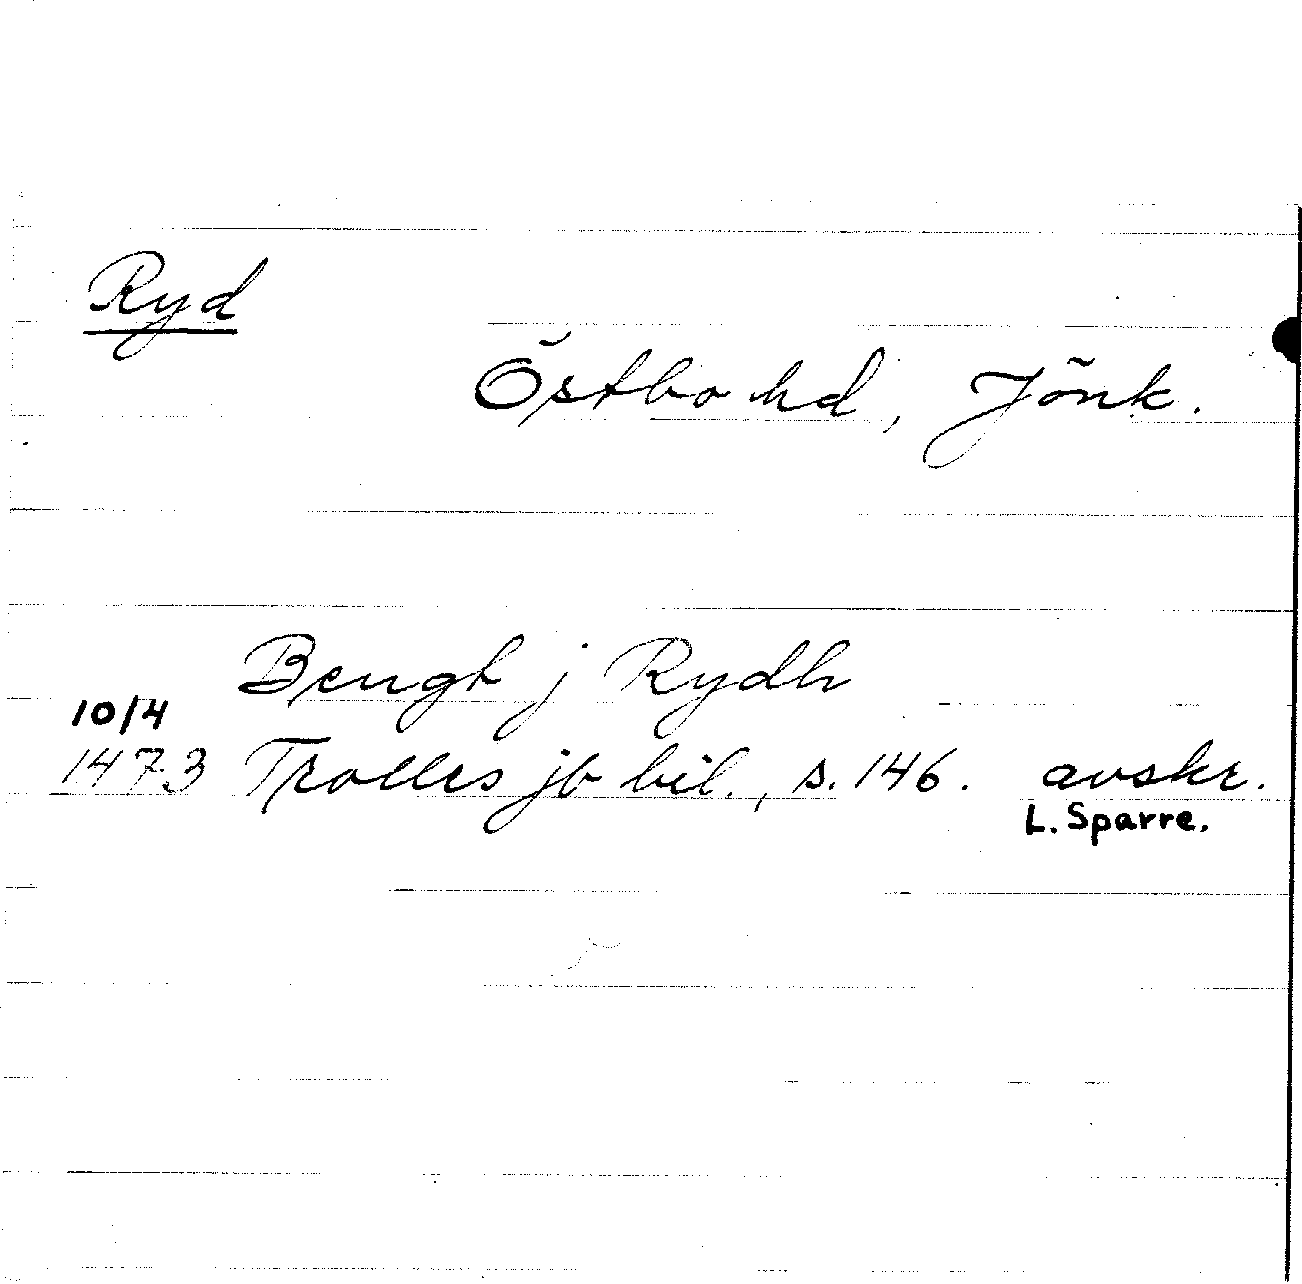 Ryd
Östbo hd, Jönk.
Bengt j Rydh
10/4
1473 Trolles jb bil., s. 146. avskr.
L. Sparre.